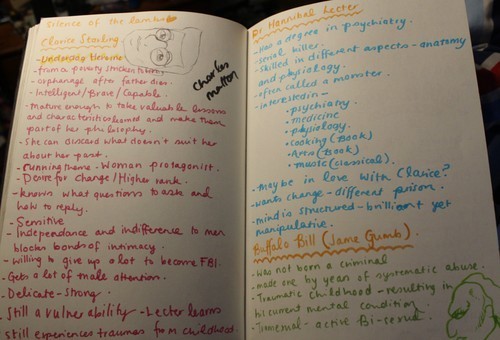 Silence of the lambs
Clarice Starling
- Underdog Heroine
- from a poverty stricken
- orphanage after father dies.
- Intelligent/Brave/Capable.
- Mature enough to take valuable lessons
and characteristics learned and make them
part of her philosophy.
- She can discard what doesn't suit her
about her past.
- running theme - Woman protagonist.
- Desire for change/Higher rank.
- knows what questions to ask and
how to reply.
- Sensitive
- Independence and indifference to men
blocks bonds of intimacy.
- Willing to give up a lot to become FBI.
- Gets a lot of male attention.
- Delicate - Strong.
- Still a vulnerability - Lecter learns
still experiences traumas from childhood.
Charles
Manson
Dr Hannibal Lecter
- Has a degree in psychiatry.
- Serial killer.
- Skilled in different aspects - anatomy
and physiology.
- often called a monster.
- interested in -
• psychiatry.
• medicine
• physiology.
• cooking (Book)
• Arts (Book)
• music (classical).
- Maybe in love with Clarice?
- wants change - different prison.
- mind is structured - brilliant yet
manipulative.
Buffalo Bill (Jame Gumb).
- Was not born a criminal
- made one by years of systematic abuse.
- Traumatic childhood - resulting in
his current mental condition.
- active Bi-sexual